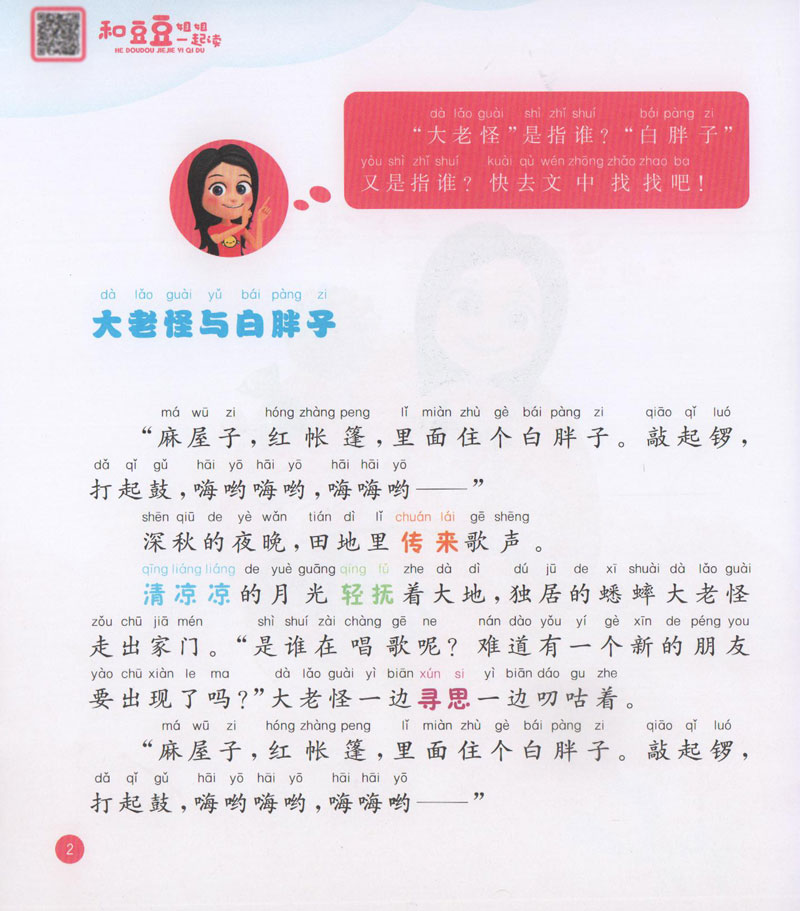 和豆豆姐姐一起读
HE DOUDOU JIEJIE YI QI DU
dà lǎo guài shì zhǐ shuí bái pàng zi
“大老怪”是指谁？“白胖子”
yòu shì zhǐ shuí kuài qù wén zhōng zhǎo zhao ba
又是指谁？快去文中找找吧！
dà lǎo guài yǔ bái pàng zi
大老怪与白胖子
má wū zi hóng zhàng peng lǐ miàn zhù gè bái pàng zi qiāo qǐ luó
“麻屋子，红帐篷，里面住个白胖子。敲起锣，
dǎ qǐ gǔ hāi yō hāi yō hāi hāi yō
打起鼓，嗨哟嗨哟，嗨嗨哟——”
shēn qiū de yè wǎn tián dì lǐ chuán lái gē shēng
深秋的夜晚，田地里传来歌声。
qīng liáng liáng de yuè guāng qīng fǔ zhe dà dì dú jū de xī shuài dà lǎo guài
清凉凉的月光轻抚着大地，独居的蟋蟀大老怪
zǒu chū jiā mén shì shuí zài chàng gē ne nán dào yǒu yí gè xīn de péng you
走出家门。“是谁在唱歌呢？难道有一个新的朋友
yào chū xiàn le ma dà lǎo guài yì biān xún si yì biān dáo gu zhe
要出现了吗？”大老怪一边寻思一边叨咕着。
má wū zi hóng zhàng peng lǐ miàn zhù gè bái pàng zi qiāo qǐ luó
“麻屋子，红帐篷，里面住个白胖子。敲起锣，
dǎ qǐ gǔ hāi yō hāi yō hāi hāi yō
打起鼓，嗨哟嗨哟，嗨嗨哟——”
2